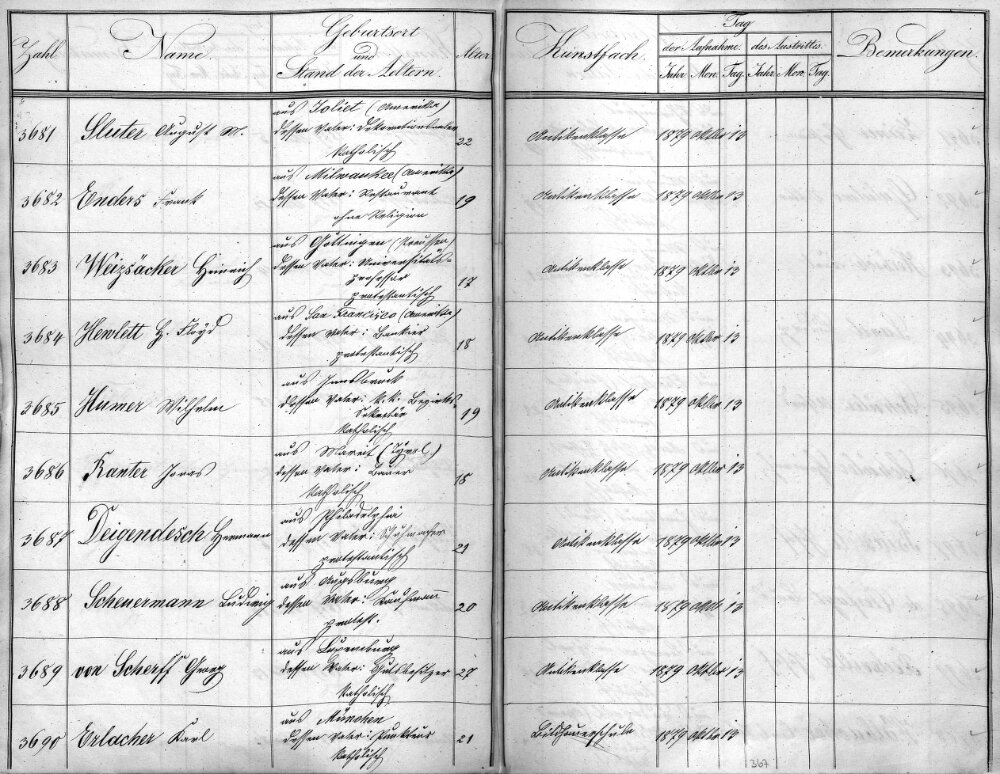 Zahl Name Geburtsort und Stand der Aeltern. Alter Kunstfach. Tag der Aufnahme. des Austrittes. Bemerkungen.
Jahr Mon. Tag. Jahr Mon. Tag.
aus Joliet (Amerika)
3681 Sluter August M. dessen Vater: Dekorationsmaler 22 Antikenklasse 1879 Oktber 13
katholisch
aus Milwaukee (Amerika)
3682 Enders Frank dessen Vater: Restaurant 19 Antikenklasse 1879 Oktber 13
ohne Religion
aus Göttingen (Preussen)
3683 Weizsäcker Heinrich dessen Vater: Universitäts- 17 Antikenklasse 1879 Oktber 13
professor
protestantisch
aus San Francisco (Amerika)
3684 Hewlett H. Floyd dessen Vater: Bankier 18 Antikenklasse 1879 Oktber 13
protestantisch
aus Innsbruck
3685 Humer Wilhelm dessen Vater: k. k. Bezirks- 19 Antikenklasse 1879 Oktber 13
Sekretär
katholisch
aus Mareit (Tyrol)
3686 Kanter Jonas dessen Vater: Bauer 18 Antikenklasse 1879 Oktber 13
katholisch
aus Philadelphia
3687 Deigendesch Hermann dessen Vater: Schuhmacher 21 Antikenklasse 1879 Oktber 13
protestantisch
aus Augsburg
3688 Scheuermann Ludwig dessen Vater: Kaufmann 20 Antikenklasse 1879 Oktb 13
protest.
aus Luxemburg
3689 von Scherff Georg dessen Vater: Gutsbesitzer 27 Antikenklasse 1879 Oktber 13
katholisch
aus München
3690 Erlacher Karl dessen Vater: 21 Bildhauerschule 1879 Oktber 13
katholisch
367